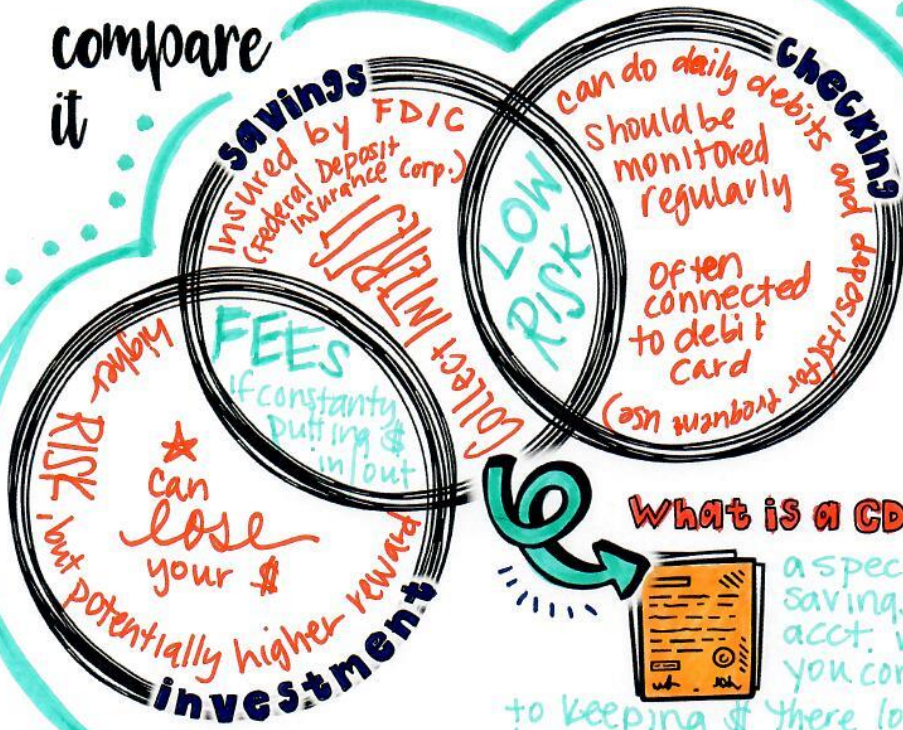 compare
it
savings
Insured by FDIC
(Federal Deposit
Insurance Corp.)
Collect INTEREST
LOW
RISK
checking
can do daily debits and deposits (for frequent use)
should be
monitored
regularly
often
connected
to debit
card
FEES
if constanty
putting $
in/out
higher RISK, but potentially higher reward
☆
can
lose
your $
investment
What is a CD
a spec
saving
acct.
you com
to keeping $ there lo